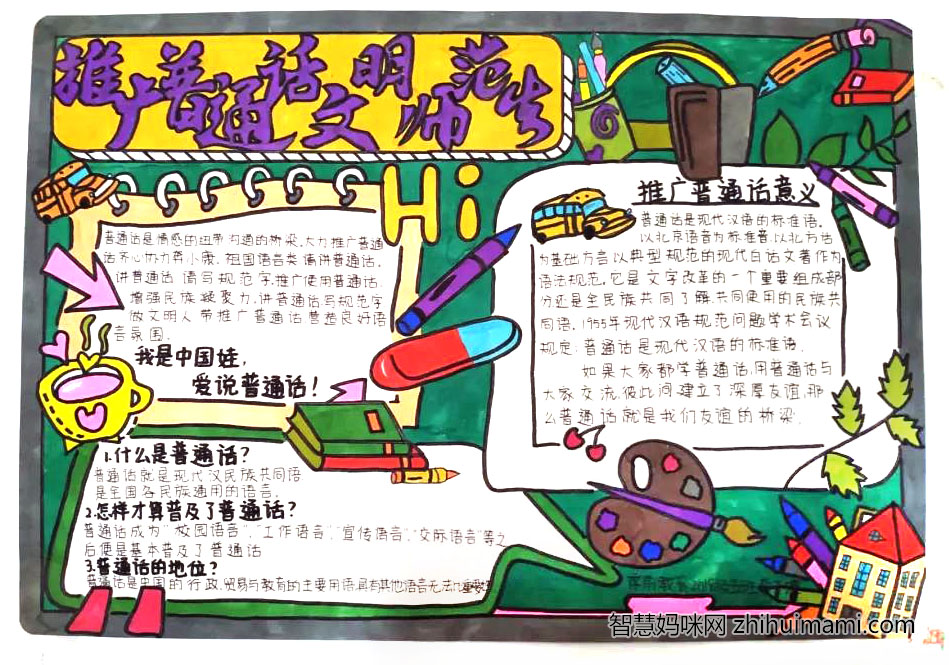 推广普通话 文明师范生
Hi
普通话是情感的纽带 沟通的桥梁。大力推广普通
话齐心协力奔小康, 祖国语言美 请讲普通话。
讲普通话 请写规范字,推广使用普通话,
增强民族凝聚力,讲普通话写规范字
做文明人 带推广普通话 营造良好语
言氛围
我是中国娃,
爱说普通话!
推广普通话意义
普通话是现代汉语的标准语。
以北京语音为标准音,以北方话
为基础方言以典型规范的现代白话文著作为
语法规范。它是文字改革的一个重要组成部
份还是全民族共同了解、共同使用的民族共
同语。1955年现代汉语规范问题学术会议
规定:普通话是现代汉语的标准语。
如果大家都学普通话,用普通话与
大家交流,彼此间建立了深厚友谊,那
么普通话就是我们友谊的桥梁。
1.什么是普通话?
普通话就是现代汉民族共同语
是全国各民族通用的语言。
2.怎样才算普及了普通话?
普通话成为“校园语言”、“工作语言”、“宣传语言”、“交际语言”等之
后便是基本普及了普通话
3.普通话的地位?
普通话是中国的行政、贸易与教育的主要用语,具有其他语言无法
智慧妈咪网 zhihuimami.com